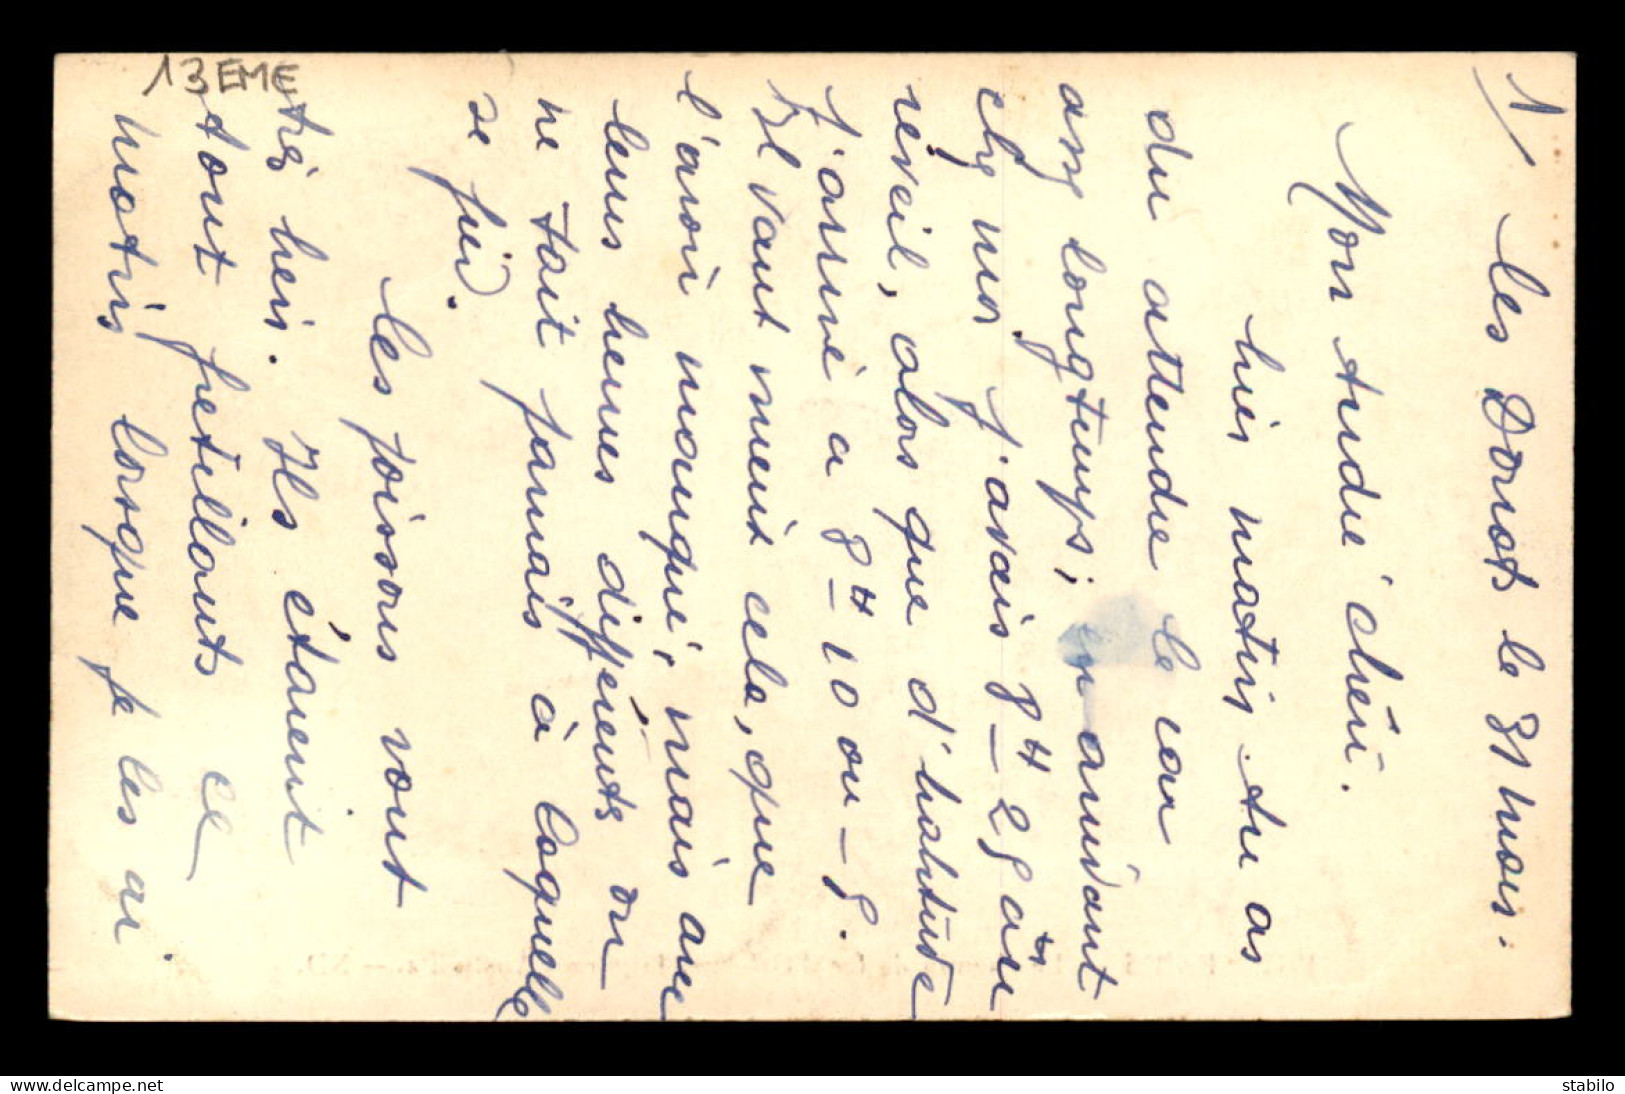 13EME
1/ Les Dorats le 31 Mars.
Mon André chéri.
hier matin tu as
du attendre le car
ass longtemps; en arrivant
chez moi j'avais 8H-25 au
réveil, alors que d'habitude
j'arrive a 8H-10 ou -5.
Il vaut mieux cela, que
l'avoir manqué, mais avec
leurs heures différentes on
ne sait jamais à laquelle
se fier.
Les poissons vont
très bien. Ils étaient
tout fretillants ce
matin lorsque je les ai
www.delcampe.net
stabilo